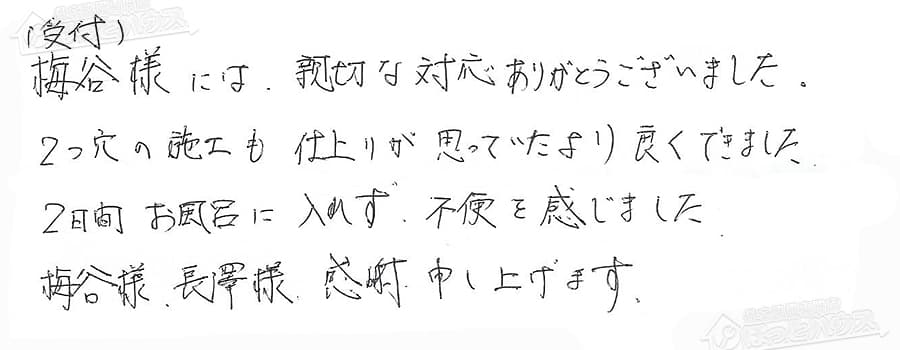 (受付)
梅谷様には、親切な対応ありがとうございました。
2つ穴の施工も仕上りが思っていたより良くできました
2日間お風呂に入れず、不便を感じました
梅谷様、長澤様、感謝申し上げます。